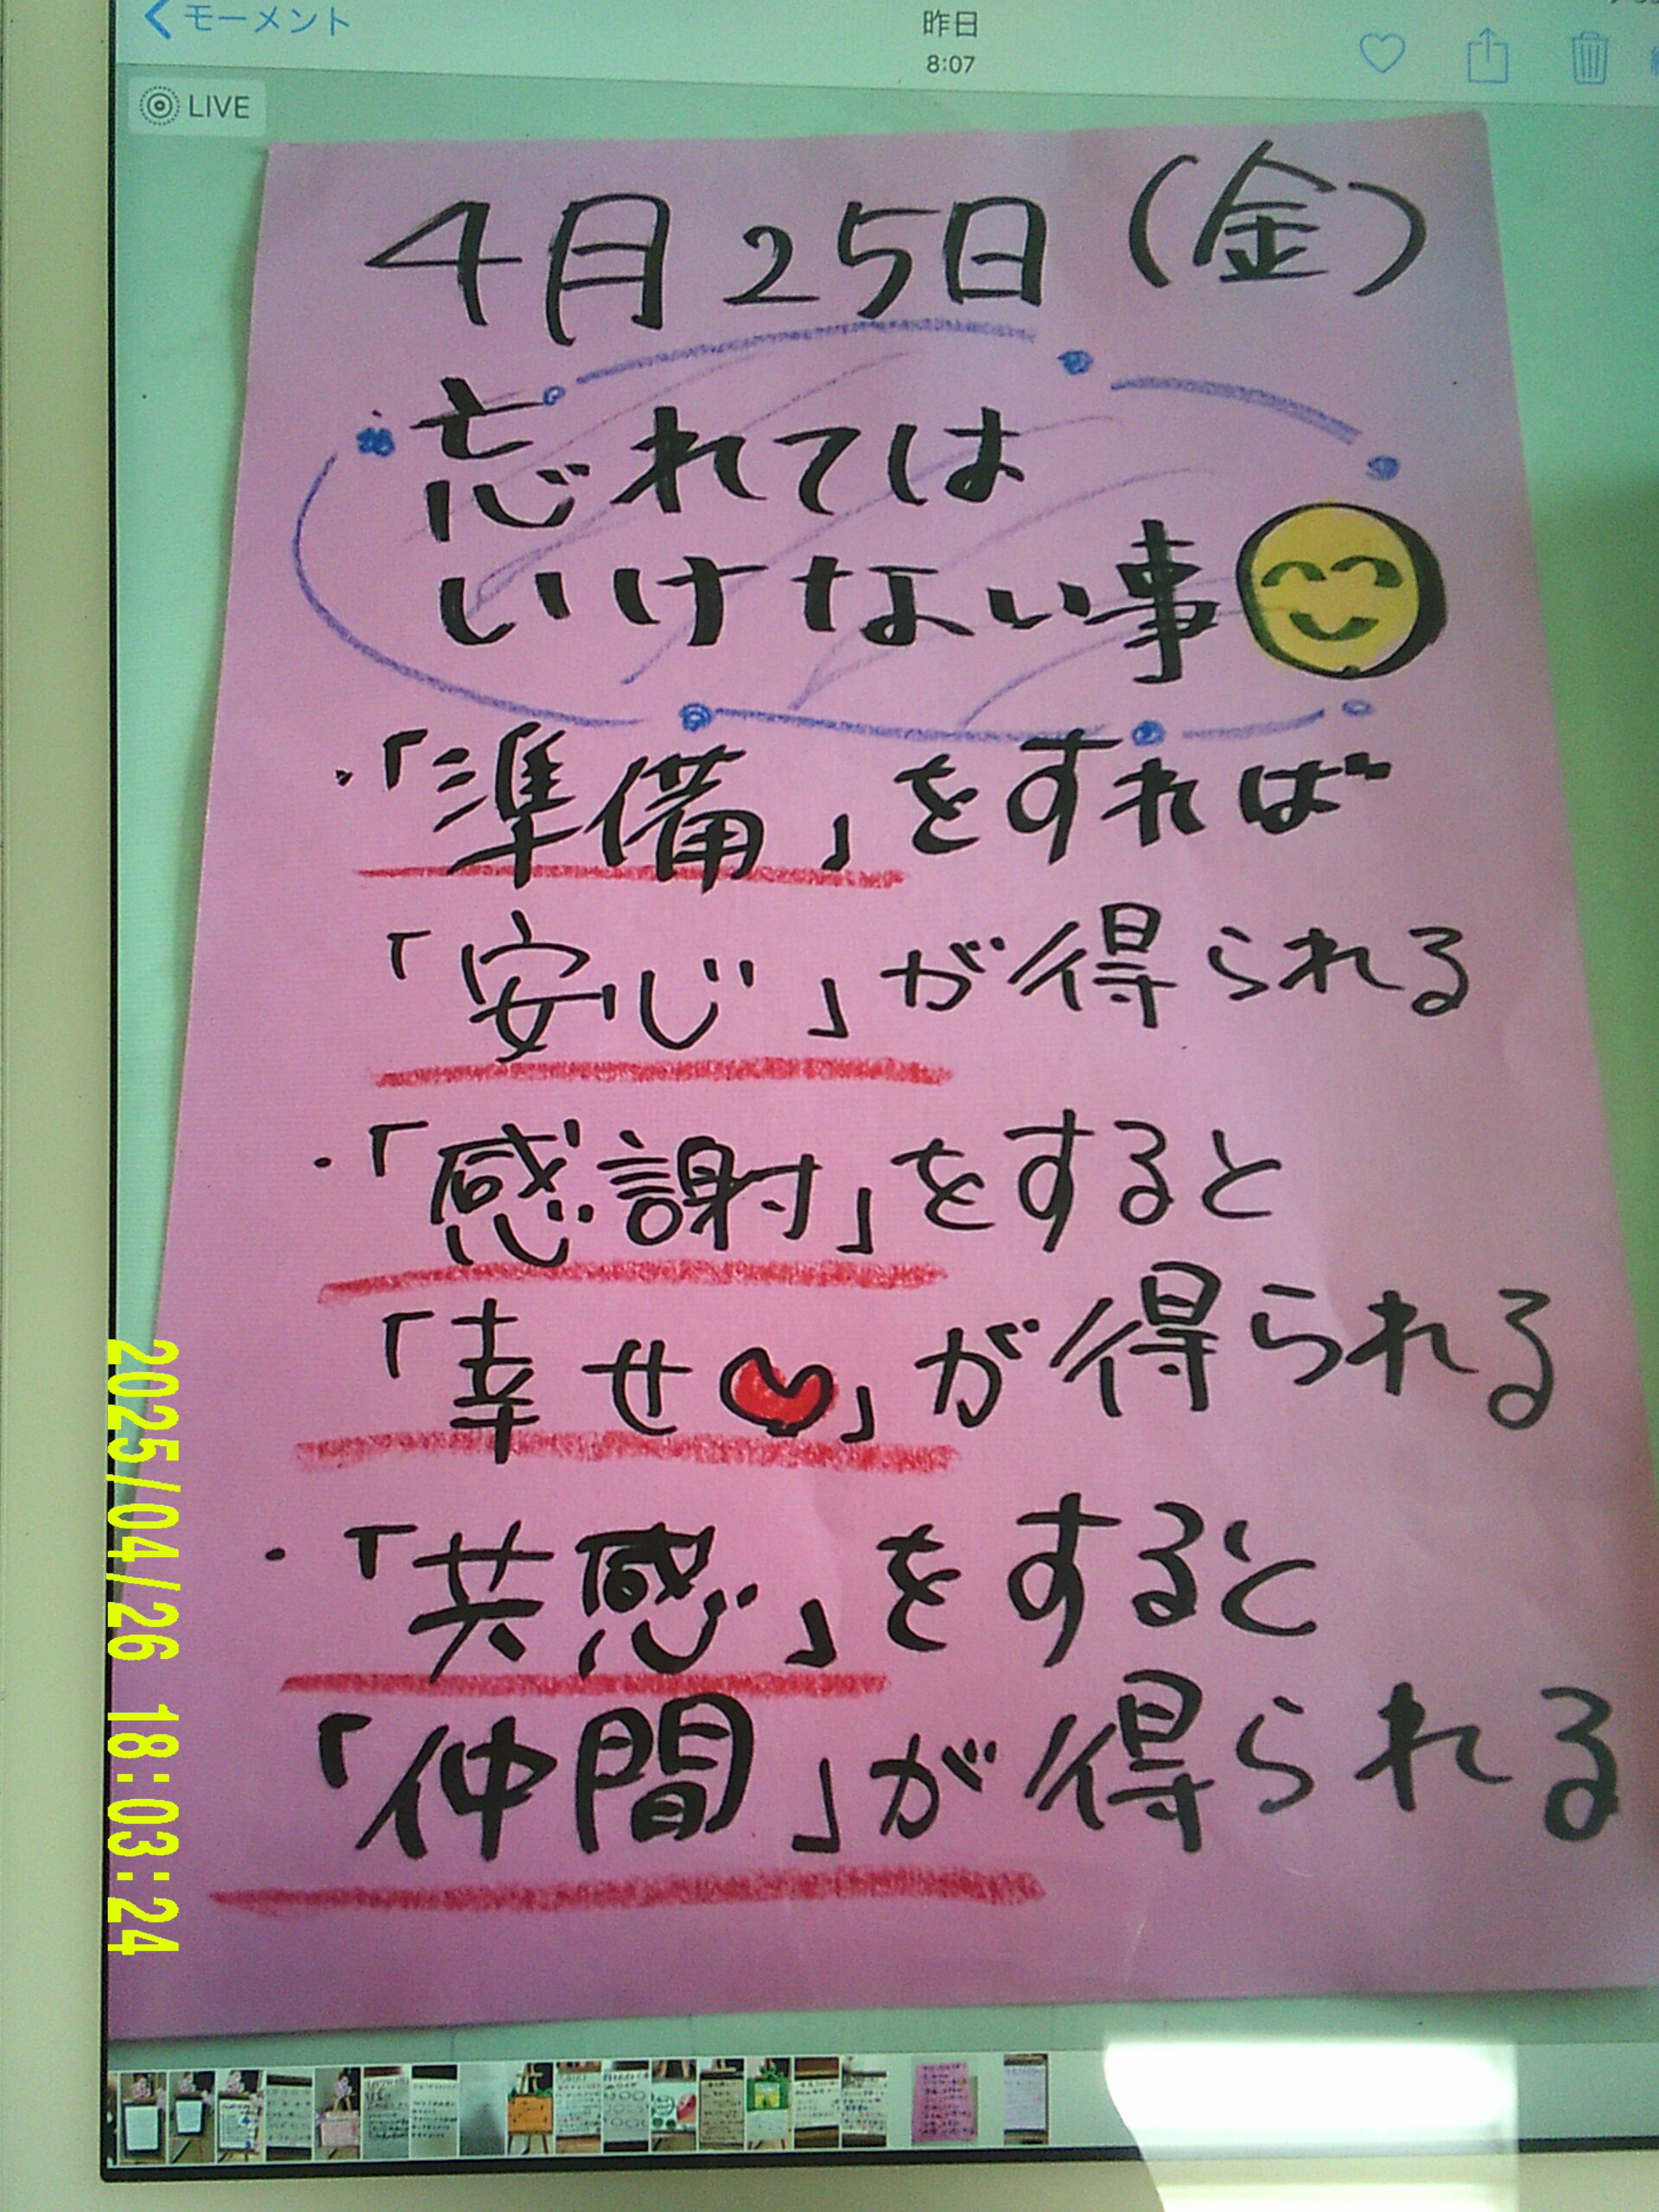 モーメント
昨日
8:07
LIVE
4月25日(金)
忘れては
いけない事
・「準備」をすれば
「安心」が得られる
・「感謝」をすると
「幸せ」が得られる
・「共感」をすると
「仲間」が得られる
2025/04/26 18:03:24